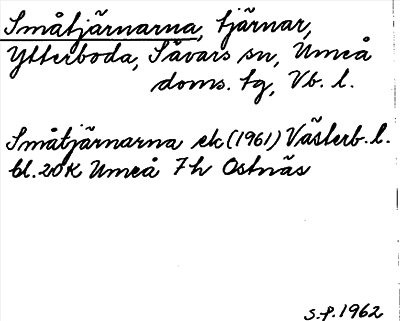 Småtjärnarna, tjärnar,
Ytterboda, Sävars sn, Umeå
doms. tg, Vb. l.
Småtjärnarna ek (1961) Västerb. l.
bl. 20K Umeå 7h Ostnäs
S.P. 1962